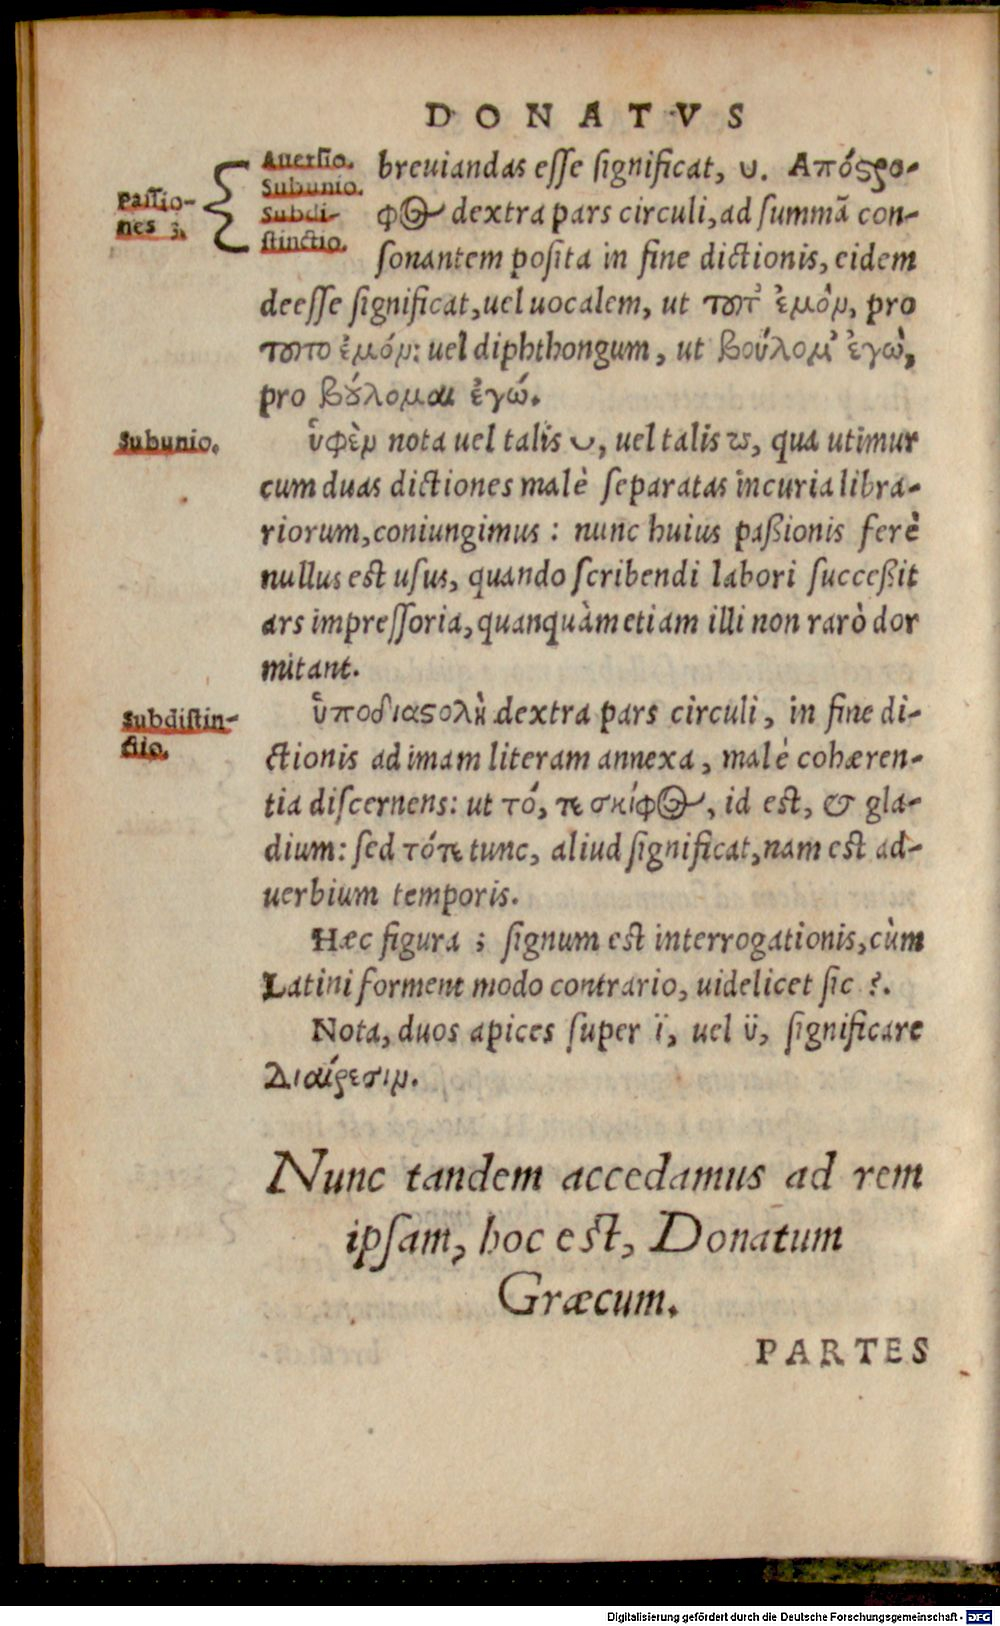 DONATVS
Auersio.
Subunio.
Subdi-
stinctio.
Passio-
nes 3.
breuiandas esse significat, υ. Απόςρο-
φος dextra pars circuli, ad summã con-
sonantem posita in fine dictionis, eidem
deesse significat, uel uocalem, ut τοῦτ᾽ ἐμὸν, pro
τοῦτο ἐμόν: uel diphthongum, ut βούλομ᾽ ἐγὼ,
pro βȣ́λομαι ἐγώ.
Subunio.
ὑφὲν nota uel talis ◡, uel talis ꙍ, qua utimur
cum duas dictiones malè separatas incuria libra-
riorum, coniungimus: nunc huius paßionis ferè
nullus est usus, quando scribendi labori succeßit
ars impressoria, quanquàm etiam illi non rarò dor
mitant.
Subdistin-
ctio.
ὑποδιαςολὴ dextra pars circuli, in fine di-
ctionis ad imam literam annexa, malè cohæren-
tia discernens: ut τό, τε σκίφος, id est, & gla-
dium: sed τότε tunc, aliud significat, nam est ad-
uerbium temporis.
Hæc figura ; signum est interrogationis, cùm
Latini forment modo contrario, uidelicet sic ?.
Nota, duos apices super ï, uel ü, significare
Διαίρεσιν.
Nunc tandem accedamus ad rem
ipsam, hoc est, Donatum
Græcum.
PARTES
Digitalisierung gefördert durch die Deutsche Forschungsgemeinschaft - DFG